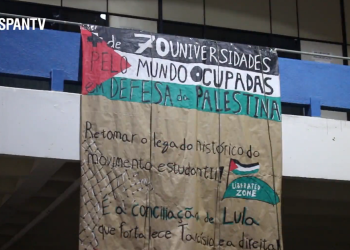 SPANTV
+ de 70 UNIVERSIDADES
PELO MUNDO OCUPADAS
EM DEFESA da PALESTINA
Retomar o legado histórico do
movimento estudantil!
LIBERATED
ZONE
É a conciliação de Lula
que fortalece Tarcísio e a direita!